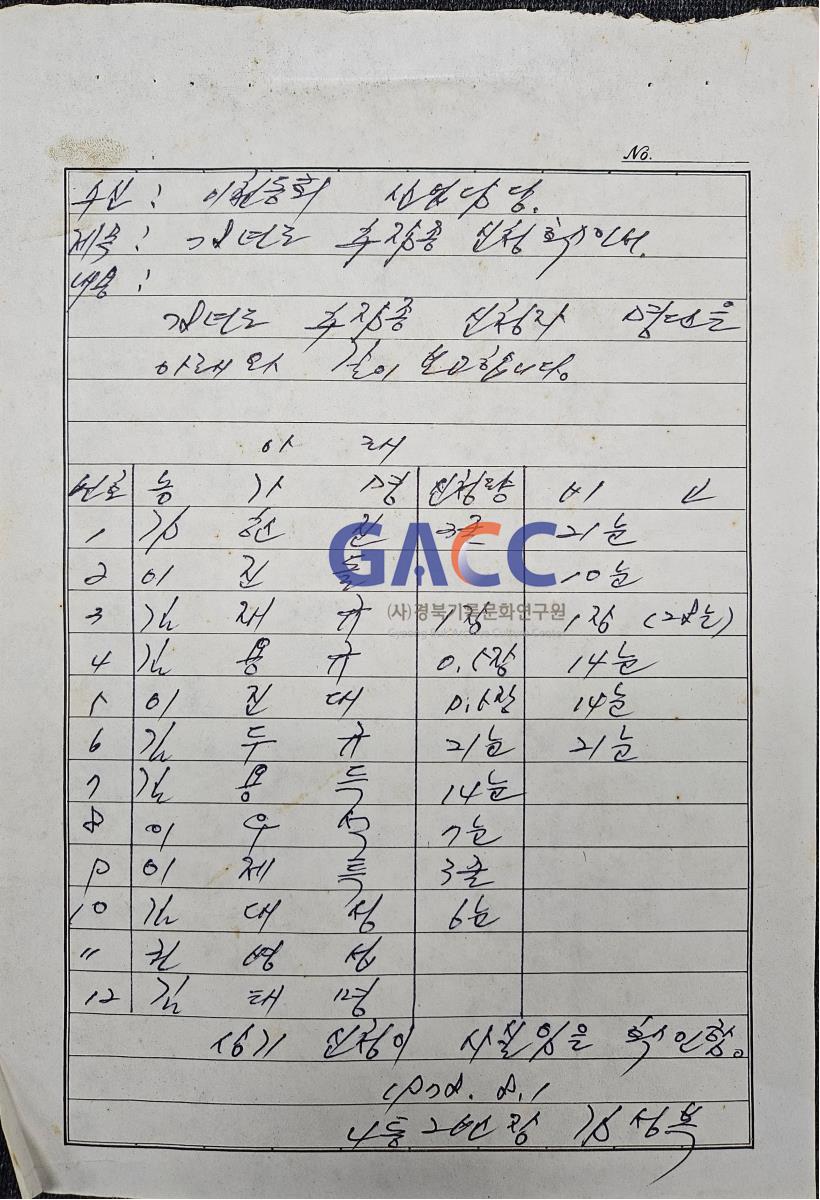 No.
수신 : 이천동회 산업담당.
제목 : 78년도 추잠종 신청 확인서.
내용 :
78년도 추잠종 신청자 명단을
아래와 같이 보고합니다.
아 래
번호 농 가 명 신청량 비 고
1 김 현 진 3줄 21눈
2 이 진 10눈
3 김 재 규 1장 1장 (28눈)
4 김 용 규 0.5장 14눈
5 이 진 대 0.5장 14눈
6 김 두 규 21눈 21눈
7 김 용 득 14눈
8 이 우 석 7눈
9 이 제 특 3줄
10 김 대 성 6눈
11 권 영 섭
12 김 태 명
상기 신청이 사실임을 확인함.
1978. 8. 1
4통 2반장 김성복
GACC
(사)경북기록문화연구원